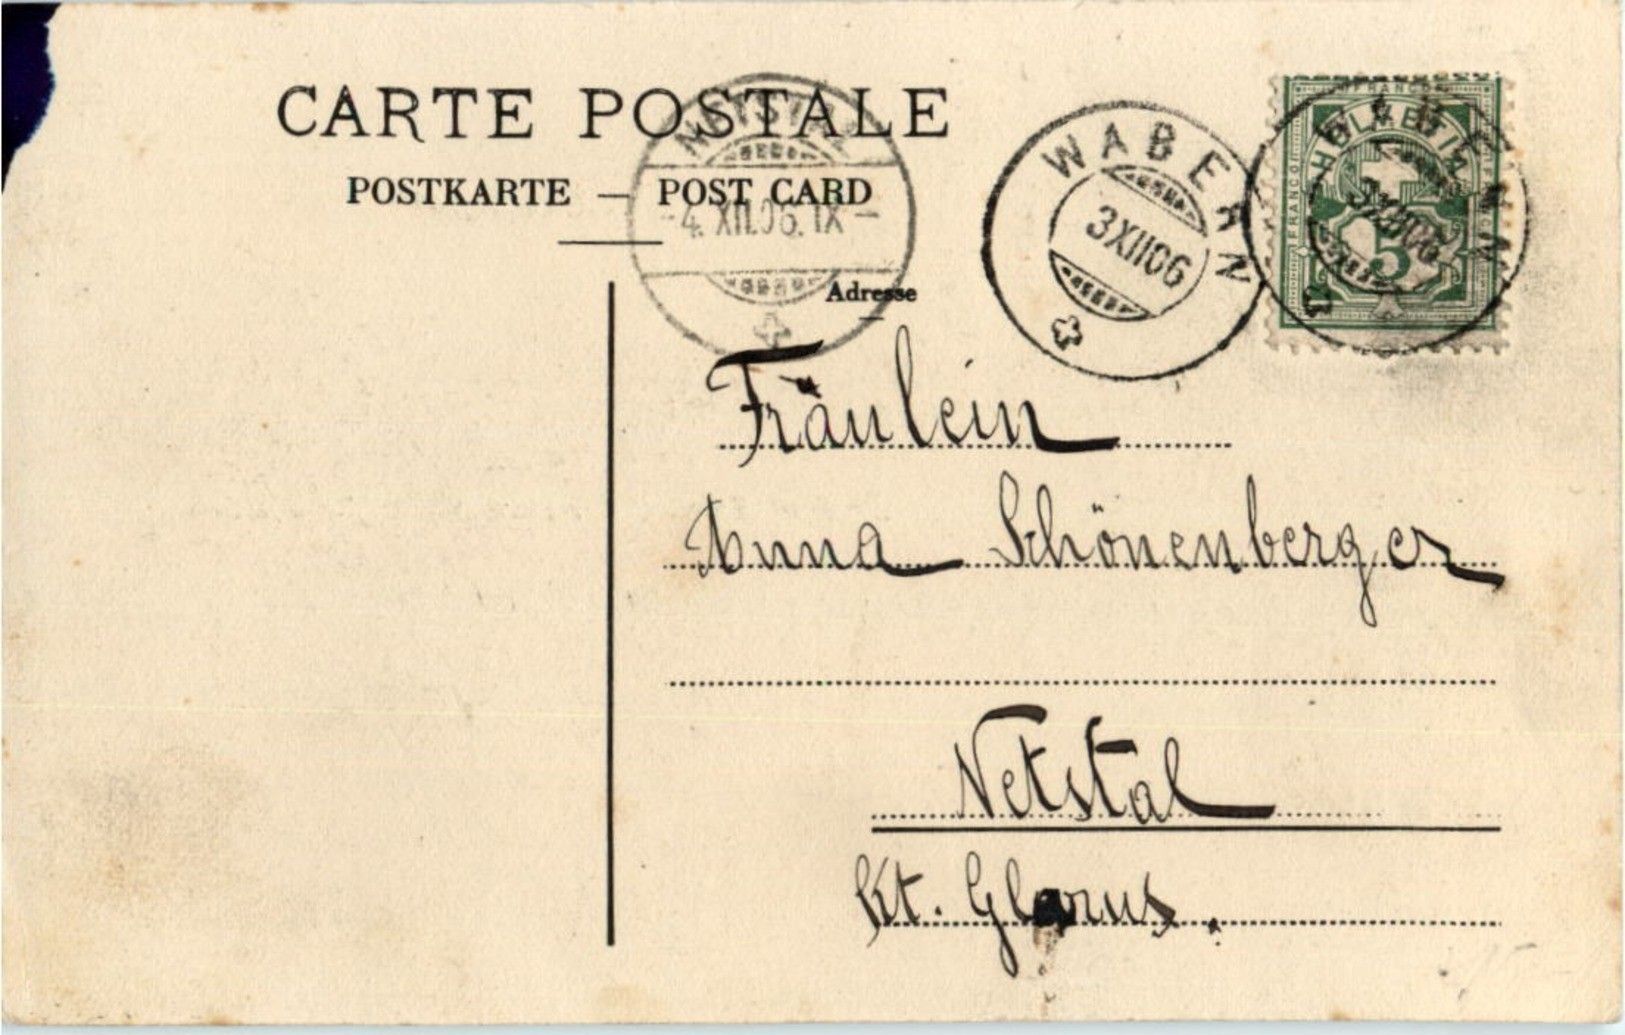 CARTE POSTALE
POSTKARTE — POST CARD
NETSTAL
-4. XII. 06. IX -
WABERN
3 XII 06
WABERN
3 XII 06
FRANCO
FRANCO
HELVETIA
5
Adresse
Fräulein
Anna Schönenberger
Netstal
Kt. Glarus.